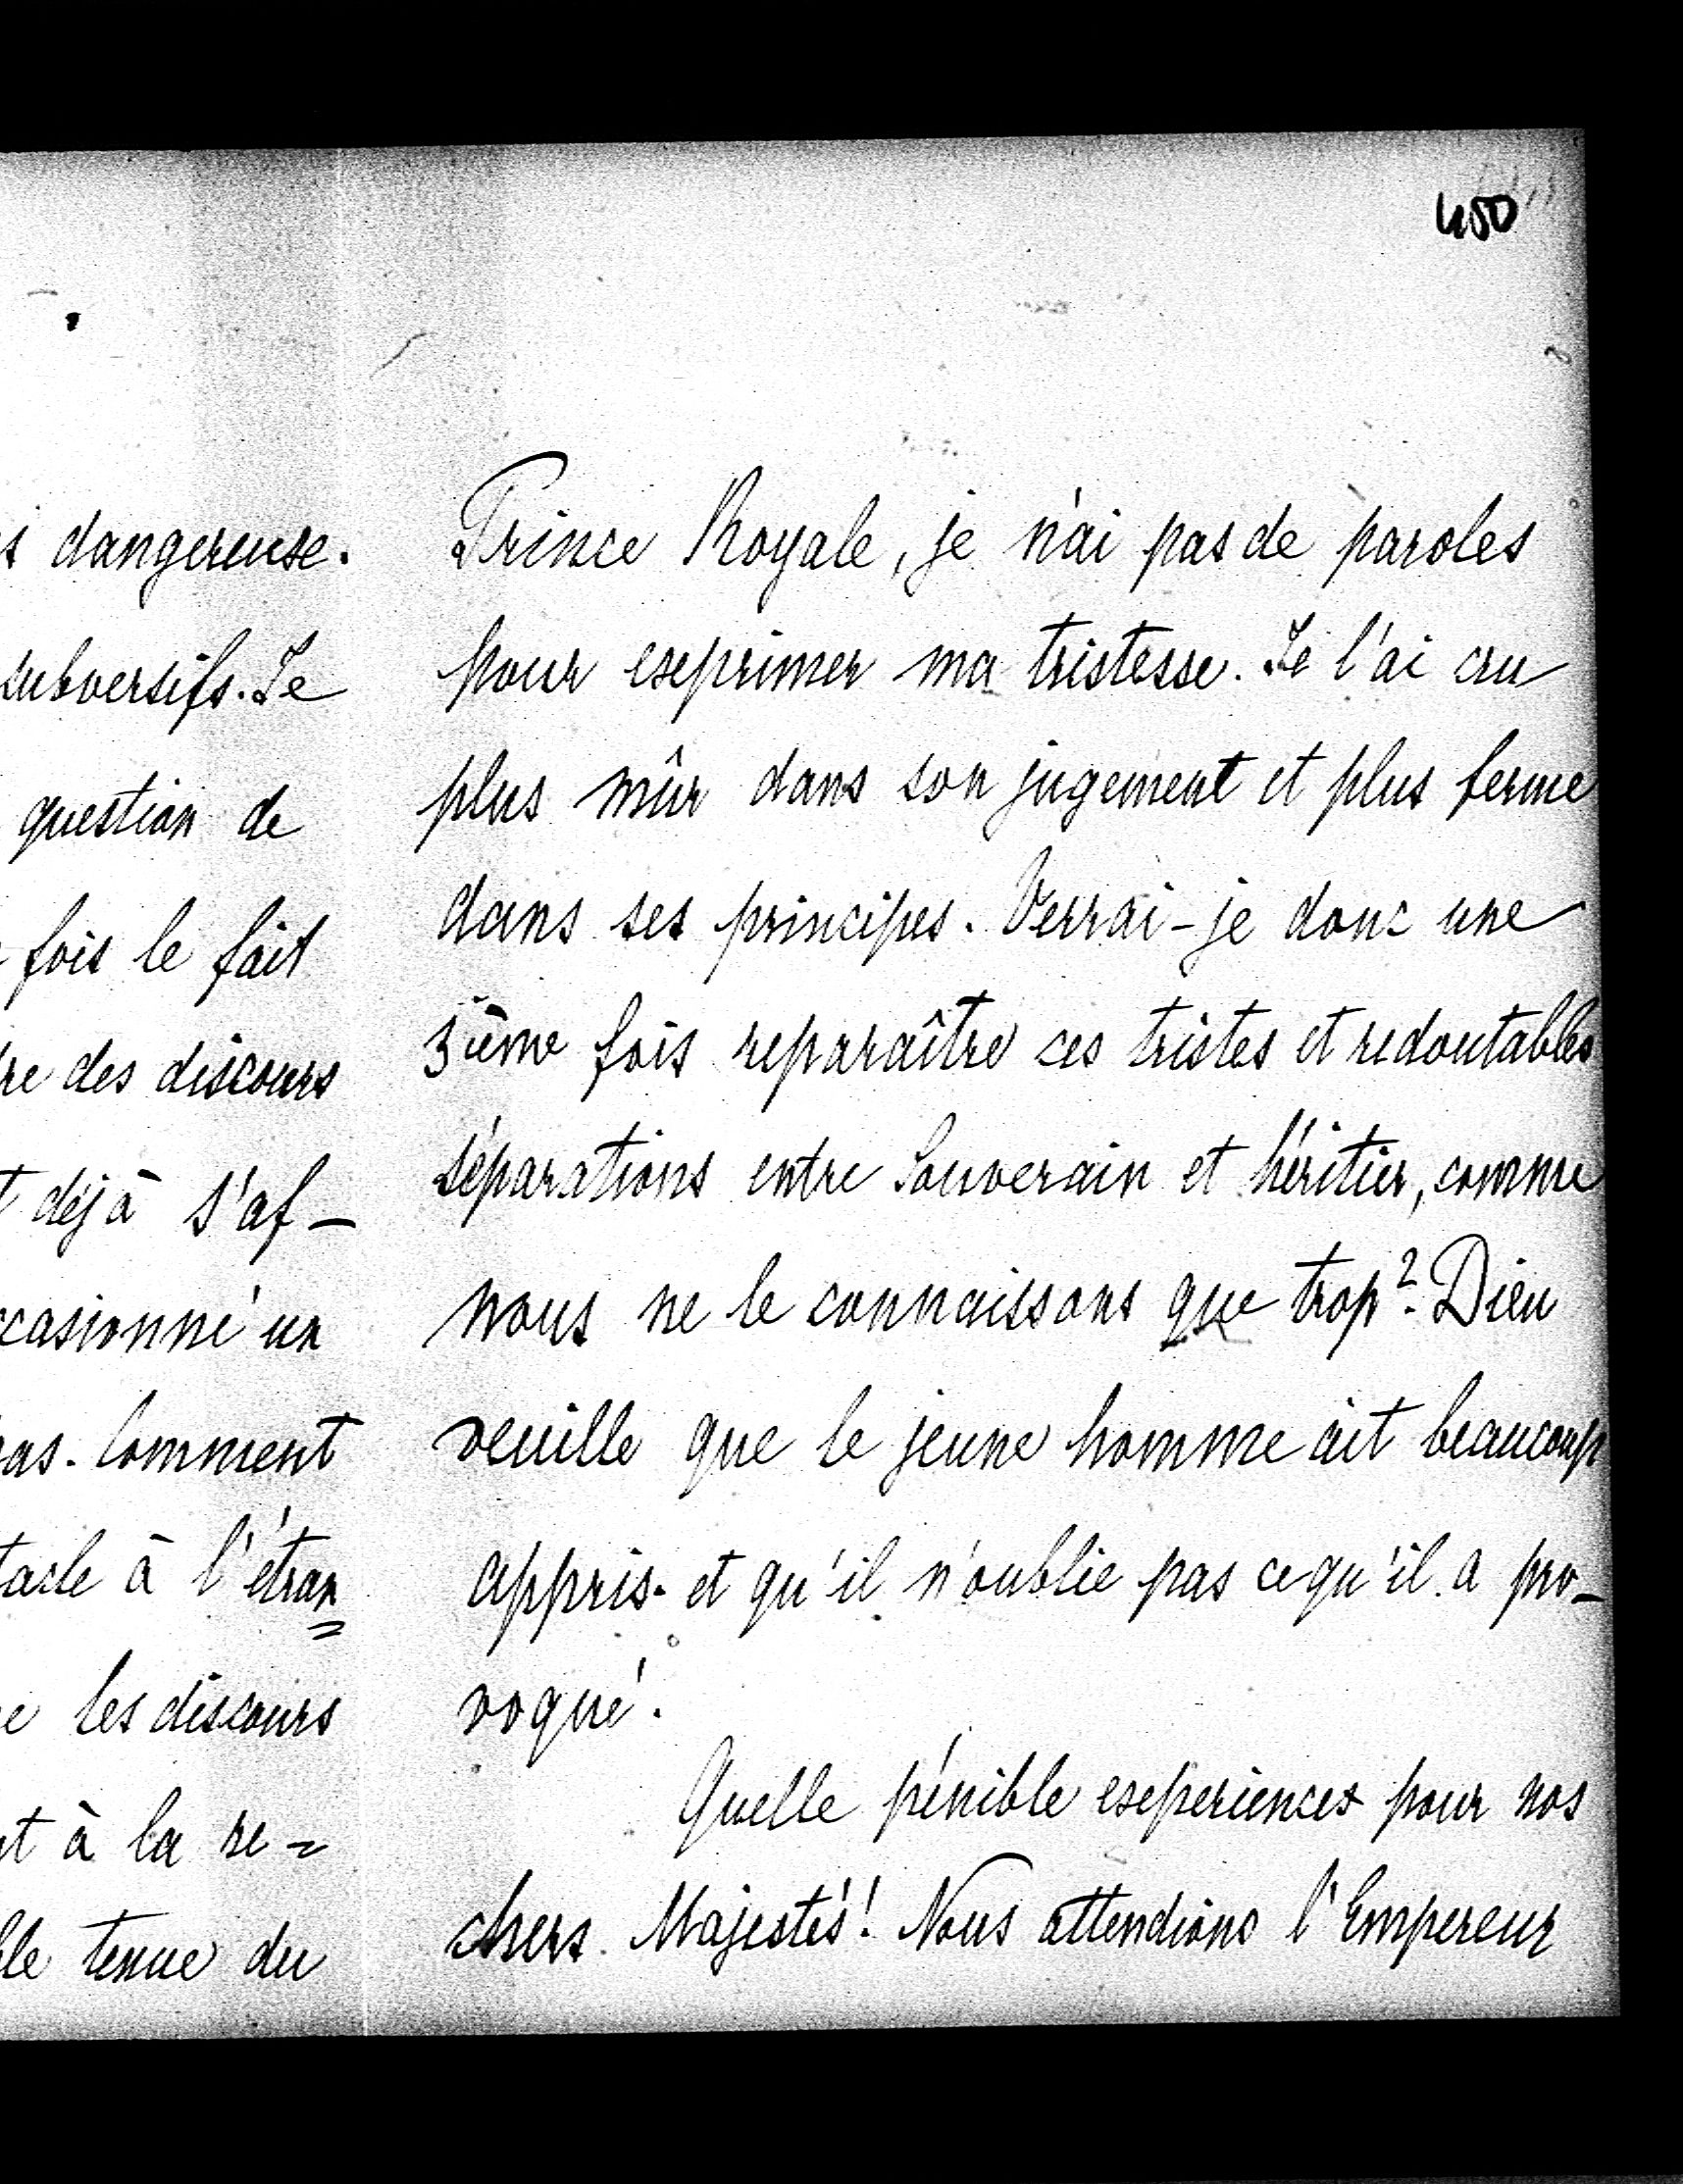 450
s dangereuse.
subversifs. Je
question de
fois le fait
re des discours
t déjà s'af-
ccasionné un
pas. Comment
tacle à l'étran=
e les discours
nt à la re=
ble tenue du
Prince Royale, je n'ai pas de paroles
pour exprimer ma tristesse. Je l'ai cru
plus mûr dans son jugement et plus ferme
dans ses principes. Verrai-je donc une
3ième fois reparaître ces tristes et redoutables
séparations entre Souverain et héritier, comme
nous ne le connaissons que trop? Dieu
veuille que le jeune homme ait beaucoup
appris et qu'il n'oublie pas ce qu'il a pro-
voqué.
Quelle pénible experiences pour nos
chers Majestés! Nous attendions l'Empereur